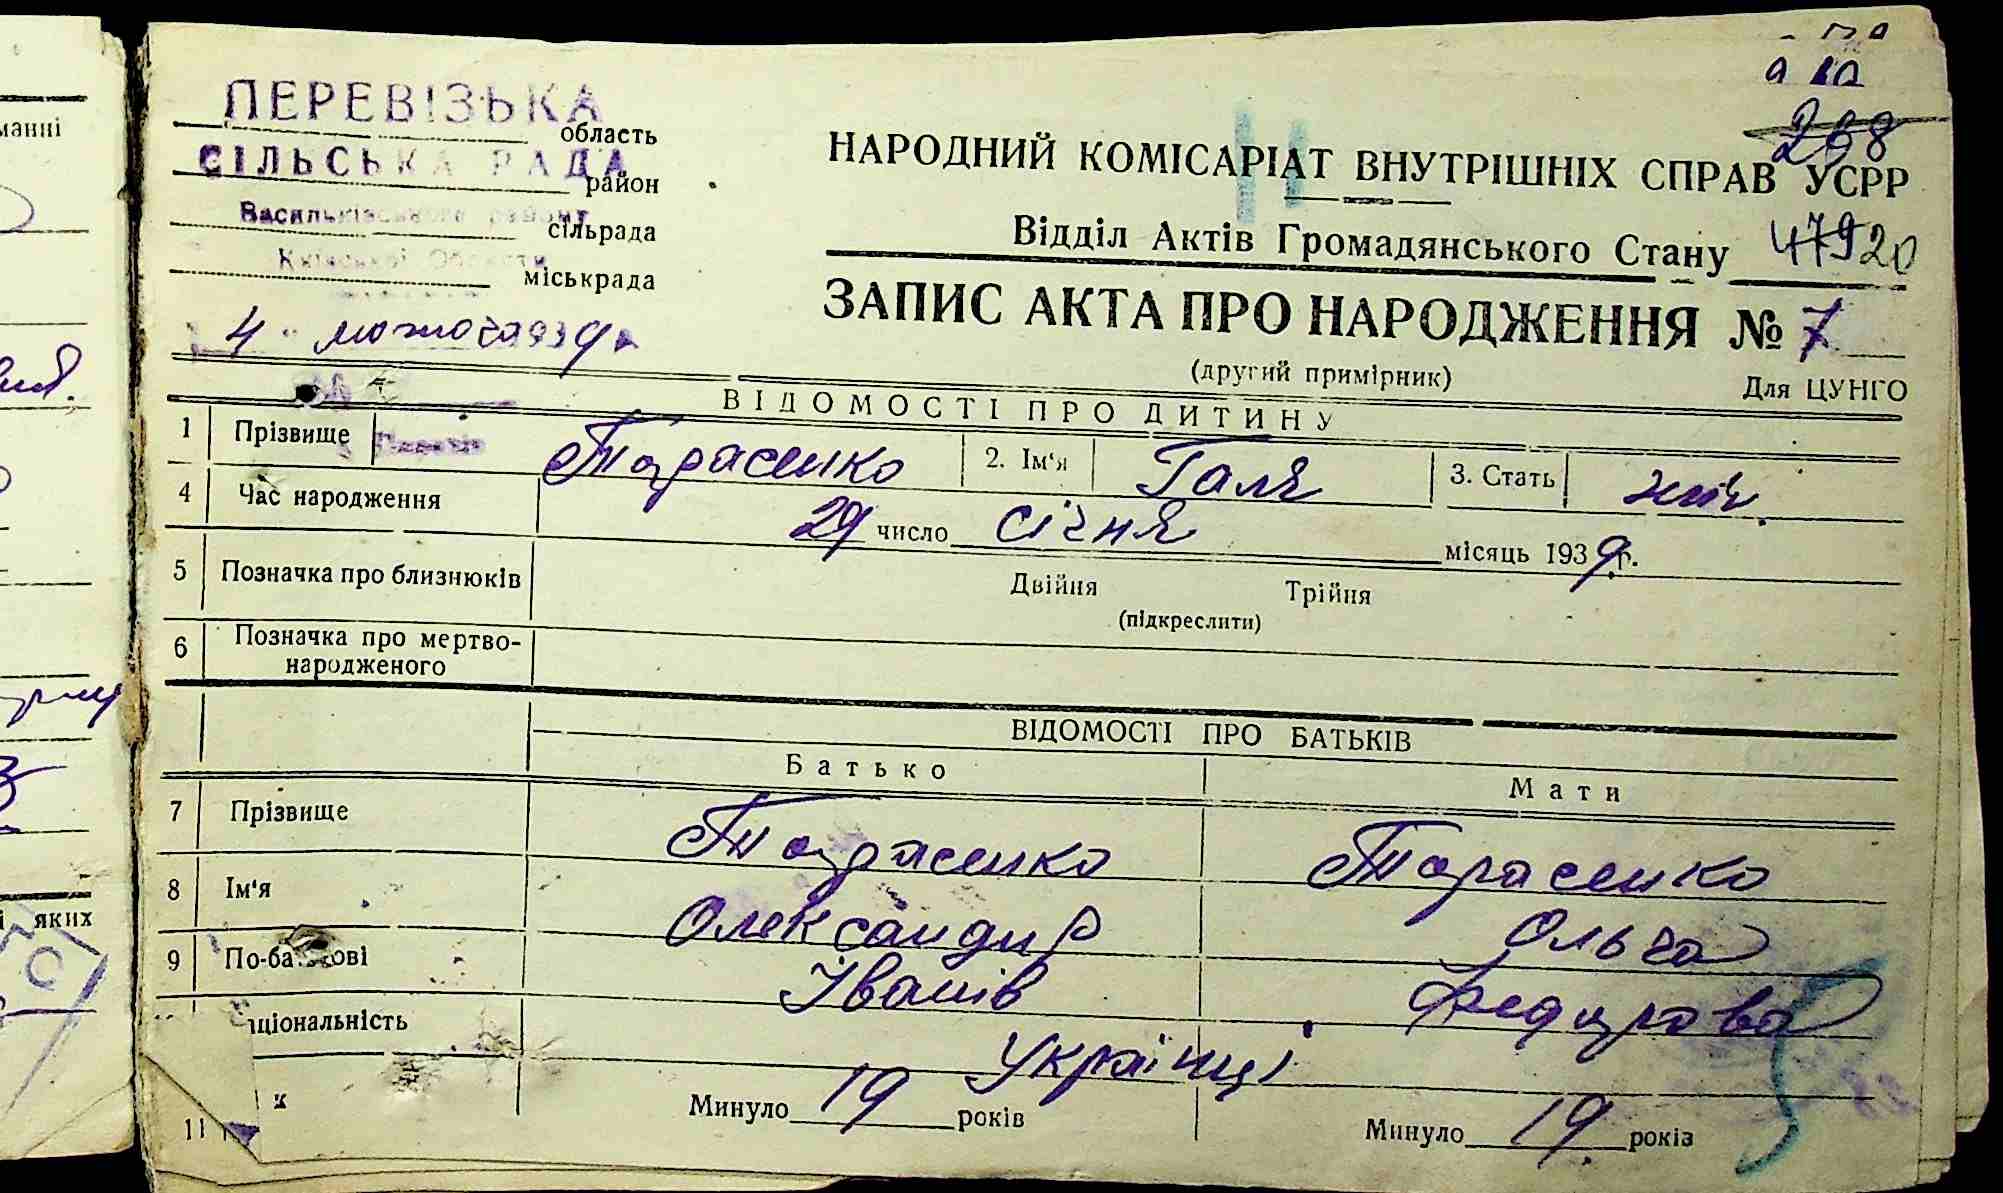 ПЕРЕВІЗЬКА
область
СІЛЬСЬКА РАДА
район
Васильківського району
сільрада
Київської Області
міськрада
4 лютого 1939 р.
268
НАРОДНИЙ КОМІСАРІАТ ВНУТРІШНІХ СПРАВ УСРР
Відділ Актів Громадянського Стану 47920
ЗАПИС АКТА ПРО НАРОДЖЕННЯ № 7
(другий примірник)
Для ЦУНГО
ВІДОМОСТІ ПРО ДИТИНУ
1 Прізвище Тарасенко 2. Ім'я Галя 3. Стать жін.
4 Час народження 29 число січня місяць 1939 р.
5 Позначка про близнюків Двійня Трійня
(підкреслити)
6 Позначка про мертво-
народженого
ВІДОМОСТІ ПРО БАТЬКІВ
Батько Мати
7 Прізвище Тарасенко Тарасенко
8 Ім'я Олександр Ольга
9 По-ба ові Іванів Федорова
ціональність Українці
11 к Минуло 19 років Минуло 19 років
манні
і яких